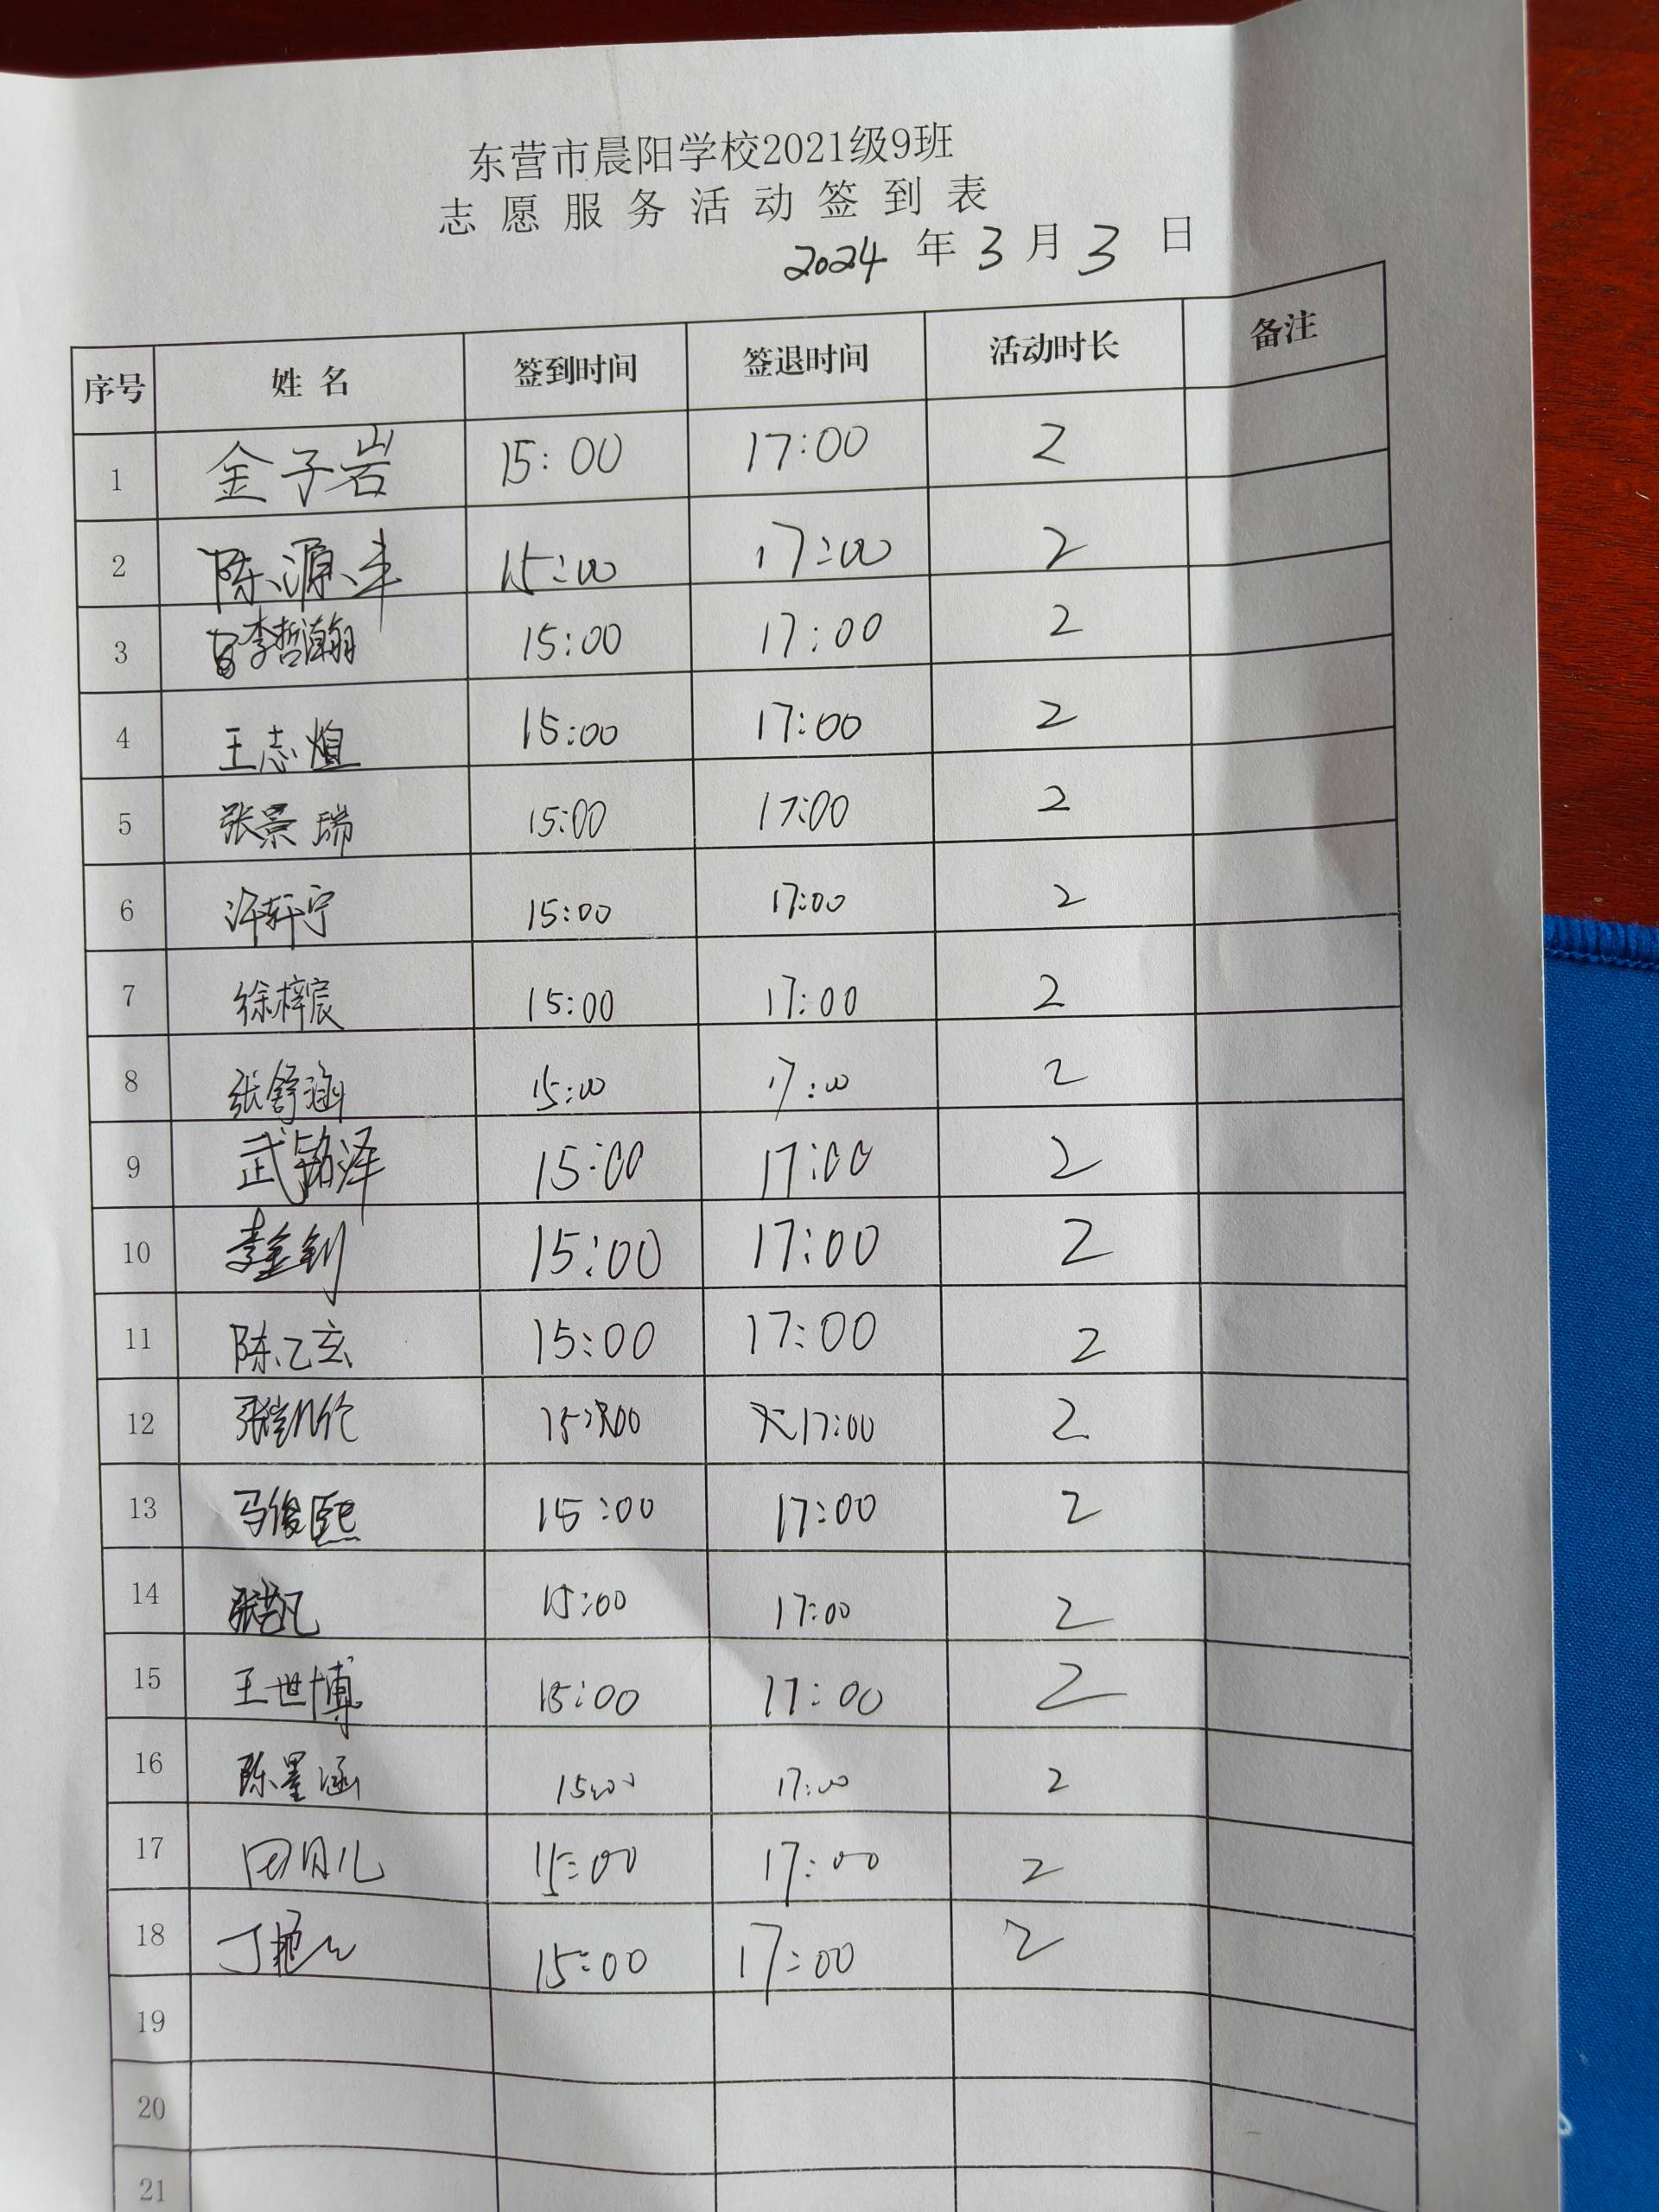 东营市晨阳学校2021级9班
志愿服务活动签到表
2024 年 3 月 3 日
序号 姓名 签到时间 签退时间 活动时长 备注
1 金子岩 15:00 17:00 2
2 陈源丰 15:00 17:00 2
3 李哲瀚 15:00 17:00 2
4 王志煊 15:00 17:00 2
5 张景瑞 15:00 17:00 2
6 许轩宁 15:00 17:00 2
7 徐梓宸 15:00 17:00 2
8 张舒涵 15:00 17:00 2
9 武铭泽 15:00 17:00 2
10 李金钊 15:00 17:00 2
11 陈乙玄 15:00 17:00 2
12 15:00 17:00 2
13 马俊熙 15:00 17:00 2
14 15:00 17:00 2
15 王世博 15:00 17:00 2
16 陈墨涵 15:00 17:00 2
17 田月儿 15:00 17:00 2
18 丁 15:00 17:00 2
19
20
21